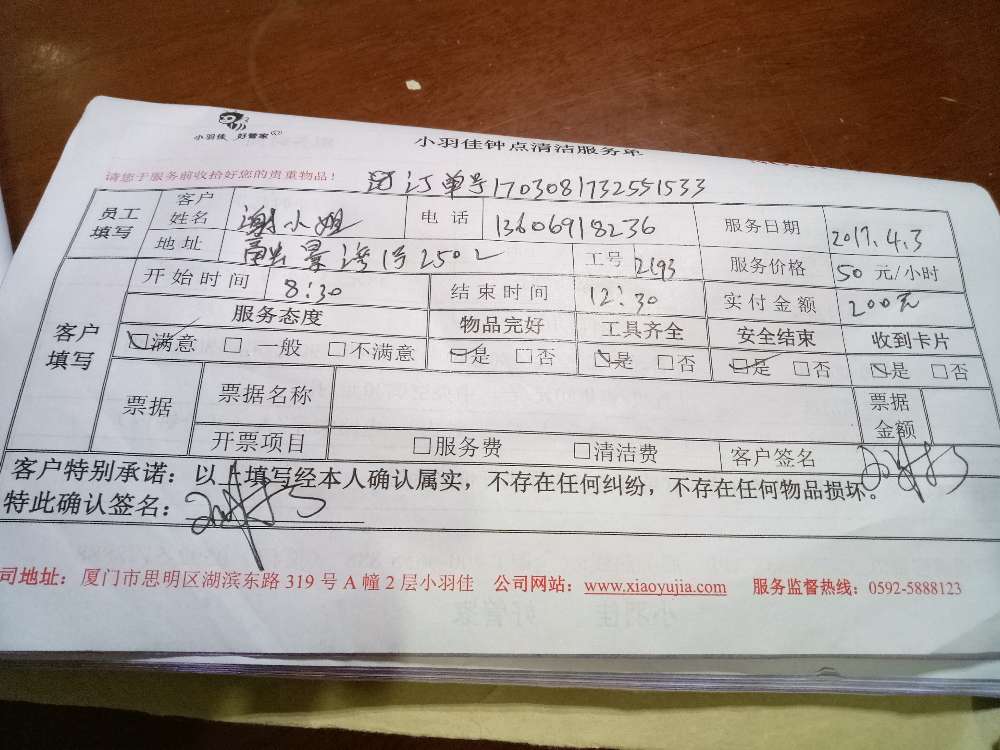 小羽佳 好管家
小羽佳钟点清洁服务单
请您于服务前收拾好您的贵重物品!
订单号1703081732551533
员工填写 客户姓名 谢小姐 电话 13606918236 服务日期 2017.4.3
地址 景湾1号2502 工号 2193 服务价格 50元/小时
客户填写 开始时间 8:30 结束时间 12:30 实付金额 200元
服务态度 物品完好 工具齐全 安全结束 收到卡片
☑满意 □一般 □不满意 ☑是 □否 ☑是 □否 ☑是 □否 ☑是 □否
票据 票据名称 票据金额
开票项目 □服务费 □清洁费 客户签名
客户特别承诺:以上填写经本人确认属实,不存在任何纠纷,不存在任何物品损坏。
特此确认签名:
司地址:厦门市思明区湖滨东路 319 号 A 幢 2 层小羽佳 公司网站:www.xiaoyujia.com 服务监督热线:0592-5888123